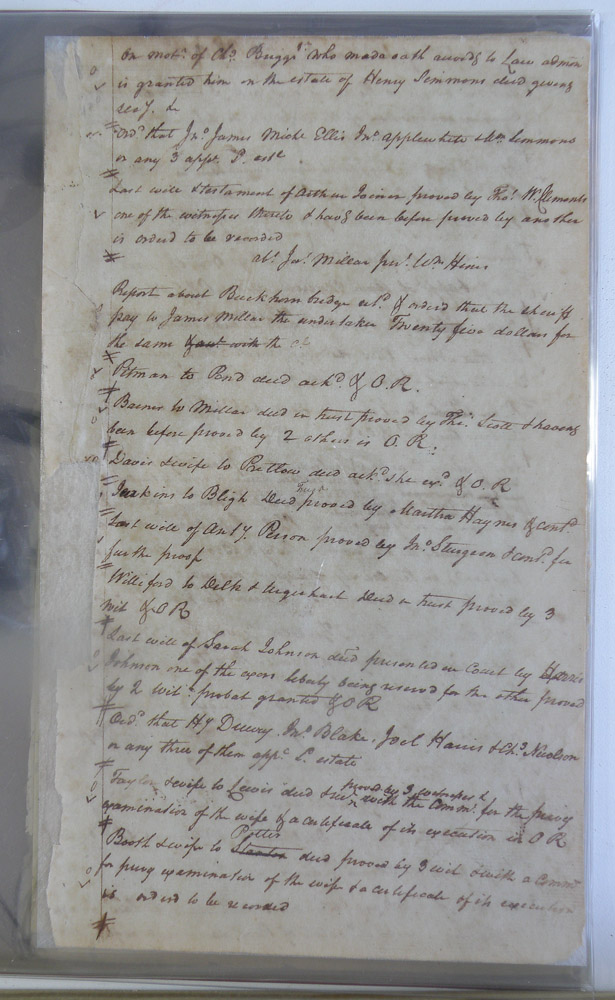 On mot.n of Chs. Briggs who made oath accordg to Law admon
is granted him on the estate of Henry Simmons decd giveng
secy. &
Ord.d that Jno James Michl Ellis Jno. Applewhite & Wm Simmons
or any 3 appe. P. este
Last will & testament of Arthur Joiner proved by Thos. W. Clements
one of the witnesses thereto & havg been before proved by another
is orderd to be recorded
abt. Jas. Millar prs. Wm Hines
Report about Buckhorn bridge retd. & orderd that the sheriff
pay to James Millar the undertaker Twenty five dollars for
the same
Pitman to Pond deed ackd. & O. R.
Barnes to Millar deed in trust proved by Thos. Scott & haveng
been before proved by 2 others is O. R.
Davis & wife to Pretlow deed ackd. she exd. & O R
Jenkins to Bligh Deed proved by Martha Haynes & contd
Last will of Anty. Person proved by Jno Sturgeon & contd. for
further proof
Williford to Delk & Urquhart Deed in trust proved by 3
wit & O R
Last will of Sarah Johnson decd presented in Court by
Johnson one of the exors liberty being reservd for the other proved
by 2 wits. probat granted & O R
Ordd. that Hy Drewry. Jno. Blake, Joel Harris & Chs Nicolson
or any three of them appe. P. estate
Taylor & wife to Lewis deed proved by 3 witnesses &
with the Commn. for the privy
examination of the wife & a certificate of its execution is O R
Booth & wife to Potter deed proved by 3 wit & with a Commn
for privy examination of the wife & a certificate of its execution
is orderd to be recorded